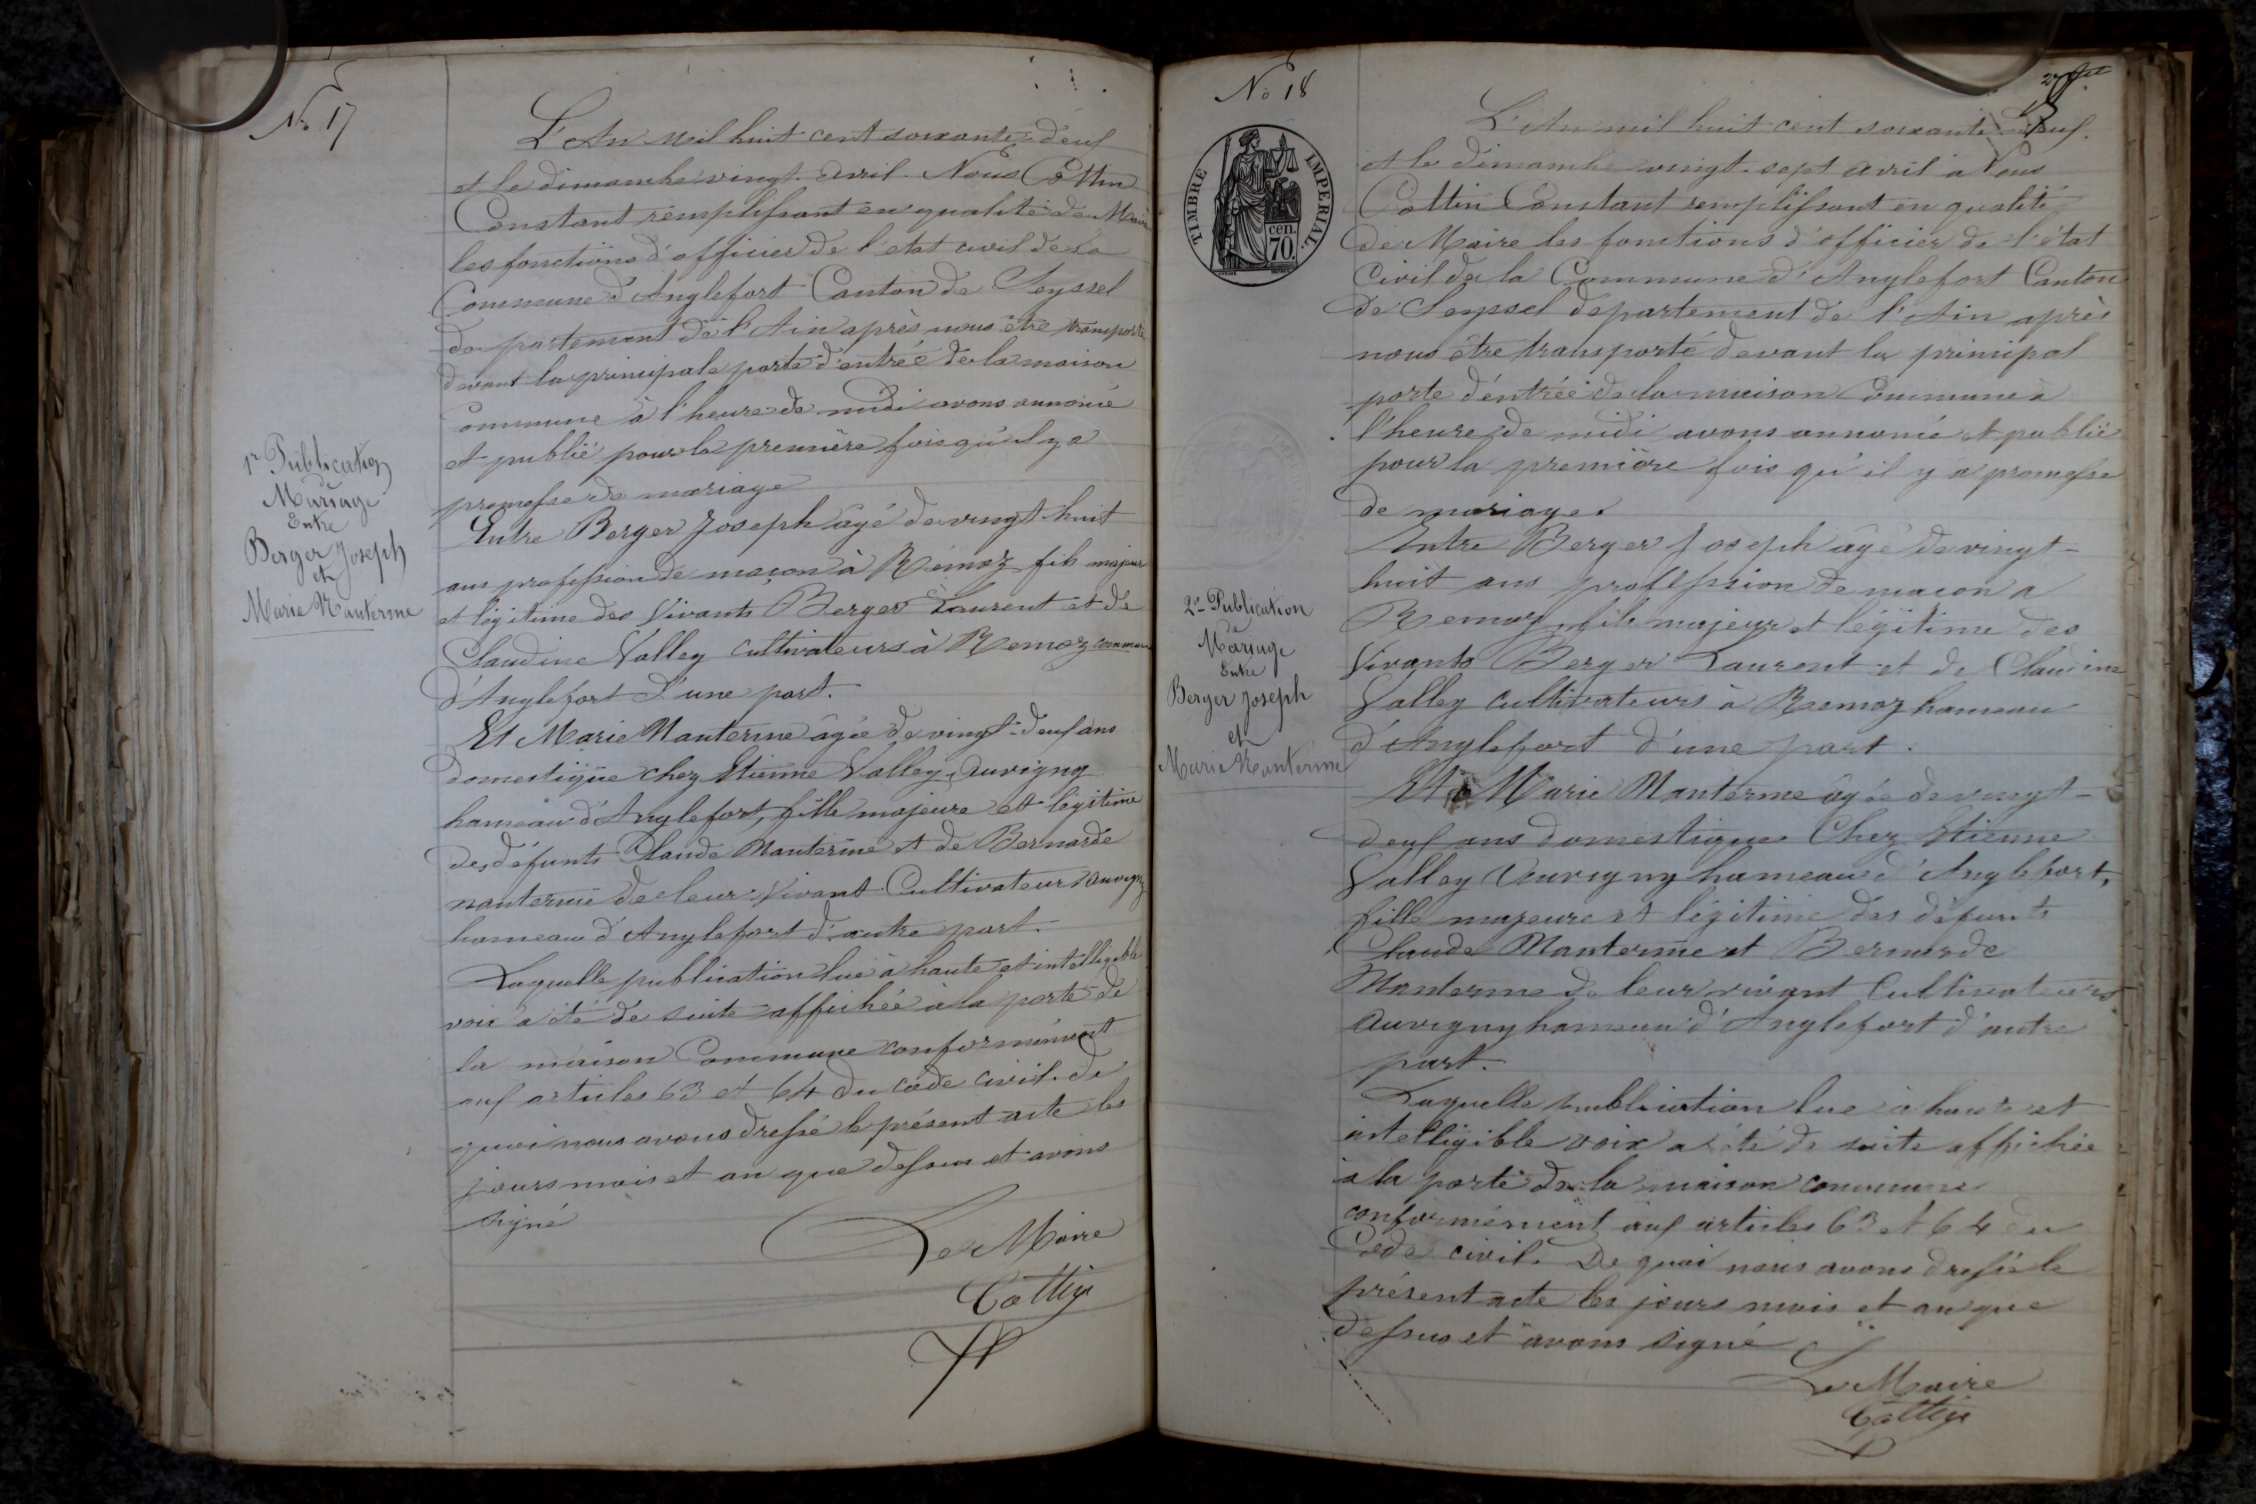 No 17
1re Publication
de
Mariage
Entre
Berger Joseph
et
Marie Nanterme
L'An mil huit cent soixante-deux
et le dimanche vingt avril. Nous Cottin
Constant remplissant en qualité de Maire
les fonctions d'officier de l'etat civil de la
Commune d'Anglefort Canton de Seyssel
departement de l'Ain après nous être transporté
devant la principale porte d'entrée de la maison
Commune à l'heure de midi avons annoncé
et publié pour la première fois qu'il y a
promesse de mariage
Entre Berger Joseph âgé de vingt-huit
ans profession de maçon à Rémoz fils majeur
et légitime des vivants Berger Laurent et de
Claudine Valley cultivateurs à Remoz commune
d'Anglefort d'une part.
Et Marie Nanterme âgée de vingt-deux ans
domestique chez Etienne Valley, auvigny
hameau d'Anglefort, fille majeure et légitime
des défunts Claude Nanterme et de Bernarde
nanterme de leur vivant Cultivateurs auvigny
hameau d'Anglefort d'autre part.
Laquelle publication lue à haute et intelligible
voix a été de suite affichée à la porte de
la maison Commune conformément
aux articles 63 et 64 du code civil. de
quoi nous avons dressé le présent acte les
jours mois et an que dessus et avons
signé
Le Maire
Cottin
No 18
TIMBRE IMPERIAL.
cen.
70.
2e Publication
de
Mariage
Entre
Berger Joseph
et
Marie Nanterme
L'An mil huit cent soixante deux.
et le dimanche vingt-sept avril a Nous
Cottin Constant remplissant en qualité
de Maire les fonctions d'officier de l'état
Civil de la Commune d'Anglefort Canton
de Seyssel departement de l'Ain après
nous être transporté devant la principal
porte d'entrée de la maison Commune à
l'heure de midi avons annoncé et publié
pour la première fois qu'il y a promesse
de mariage.
Entre Berger Joseph âgé de vingt-
huit ans profession de maçon a
Remoz, fils majeur et légitime des
Vivants Berger Laurent et de Claudine
Valley cultivateurs à Remoz hameau
d'Anglefort d'une part.
Et Marie Nanterme âgée de vingt-
deux ans domestique Chez Etienne
Valley auvigny hameau d'Anglefort,
fille majeure et légitime des défunts
Claude Nanterme et Bernarde
Nanterme de leur vivant Cultivateurs
auvigny hameau d'Anglefort d'autre
part.
Laquelle publication lue à haute et
intelligible voix a été de suite affichée
à la porte de la maison commune
conformément aux articles 63 et 64 du
Code civil. De quoi nous avons dressé le
présent acte les jours mois et an que
dessus et avons signé
Le Maire
Cottin